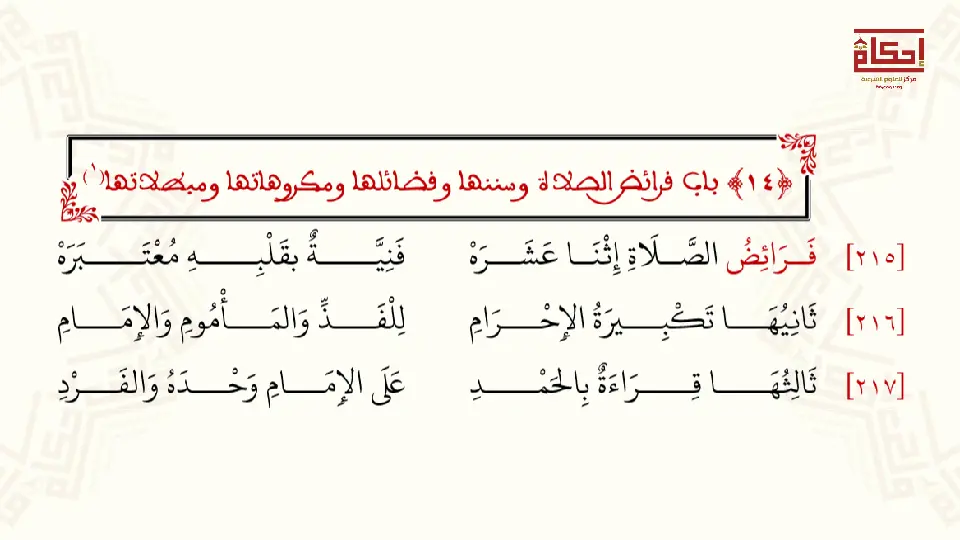 إحكام
مركز للعلوم الشرعية
﴿١٤﴾ باب فرائض الصلاة وسننها وفضائلها ومكروهاتها ومبطلاتها(١)
[٢١٥] فَـرَائِضُ الصَّـلَاةِ إِثْنَـا عَشَـرَهْ فَنِيَّـةٌ بقَلْبِـهِ مُعْتَـبَرَهْ
[٢١٦] ثَانِيُهَـا تَكْبِـيرَةُ الإِحْـرَامِ لِلْفَـذِّ وَالمَـأْمُومِ وَالإِمَـامِ
[٢١٧] ثَالِثُهَـا قِـرَاءَةٌ بِالحَمْـدِ عَلَى الإِمَـامِ وَحْـدَهُ وَالفَـرْدِ